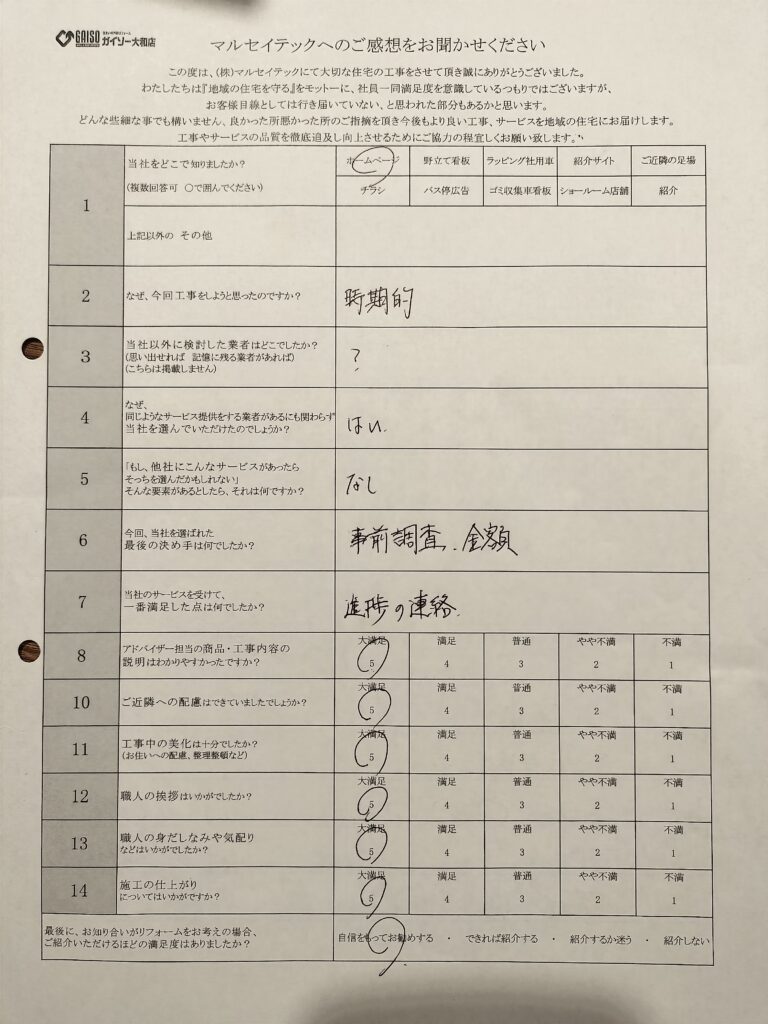 GAISO ガイソー大和店
マルセイテックへのご感想をお聞かせください
この度は、(株)マルセイテックにて大切な住宅の工事をさせて頂き誠にありがとうございました。
わたしたちは『地域の住宅を守る』をモットーに、社員一同満足度を意識しているつもりではございますが、
お客様目線としては行き届いていない、と思われた部分もあるかと思います。
どんな些細な事でも構いません、良かった所悪かった所のご指摘を頂き今後もより良い工事、サービスを地域の住宅にお届けします。
工事やサービスの品質を徹底追及し向上させるためにご協力の程宜しくお願い致します。
1
当社をどこで知りましたか?
(複数回答可 ○で囲んでください)
ホームページ 野立て看板 ラッピング社用車 紹介サイト ご近隣の足場
チラシ バス停広告 ゴミ収集車看板 ショールーム店舗 紹介
上記以外の その他
2 なぜ、今回工事をしようと思ったのですか? 時期的
3
当社以外に検討した業者はどこでしたか?
(思い出せれば 記憶に残る業者があれば)
(こちらは掲載しません)
?
4
なぜ、
同じようなサービス提供をする業者があるにも関わらず
当社を選んでいただけたのでしょうか?
はい.
5
「もし、他社にこんなサービスがあったら
そっちを選んだかもしれない」
そんな要素があるとしたら、それは何ですか?
なし
6
今回、当社を選ばれた
最後の決め手は何でしたか?
事前調査、金額
7
当社のサービスを受けて、
一番満足した点は何でしたか?
進捗の連絡.
8
アドバイザー担当の商品・工事内容の
説明はわかりやすかったですか?
大満足 満足 普通 やや不満 不満
5 4 3 2 1
10 ご近隣への配慮はできていましたでしょうか?
大満足 満足 普通 やや不満 不満
5 4 3 2 1
11
工事中の美化は十分でしたか?
(お住いへの配慮、整理整頓など)
大満足 満足 普通 やや不満 不満
5 4 3 2 1
12 職人の挨拶はいかがでしたか?
大満足 満足 普通 やや不満 不満
5 4 3 2 1
13
職人の身だしなみや気配り
などはいかがでしたか?
大満足 満足 普通 やや不満 不満
5 4 3 2 1
14
施工の仕上がり
についてはいかがですか?
大満足 満足 普通 やや不満 不満
5 4 3 2 1
最後に、お知り合いがリフォームをお考えの場合、
ご紹介いただけるほどの満足度はありましたか?
自信をもってお勧めする ・ できれば紹介する ・ 紹介するか迷う ・ 紹介しない